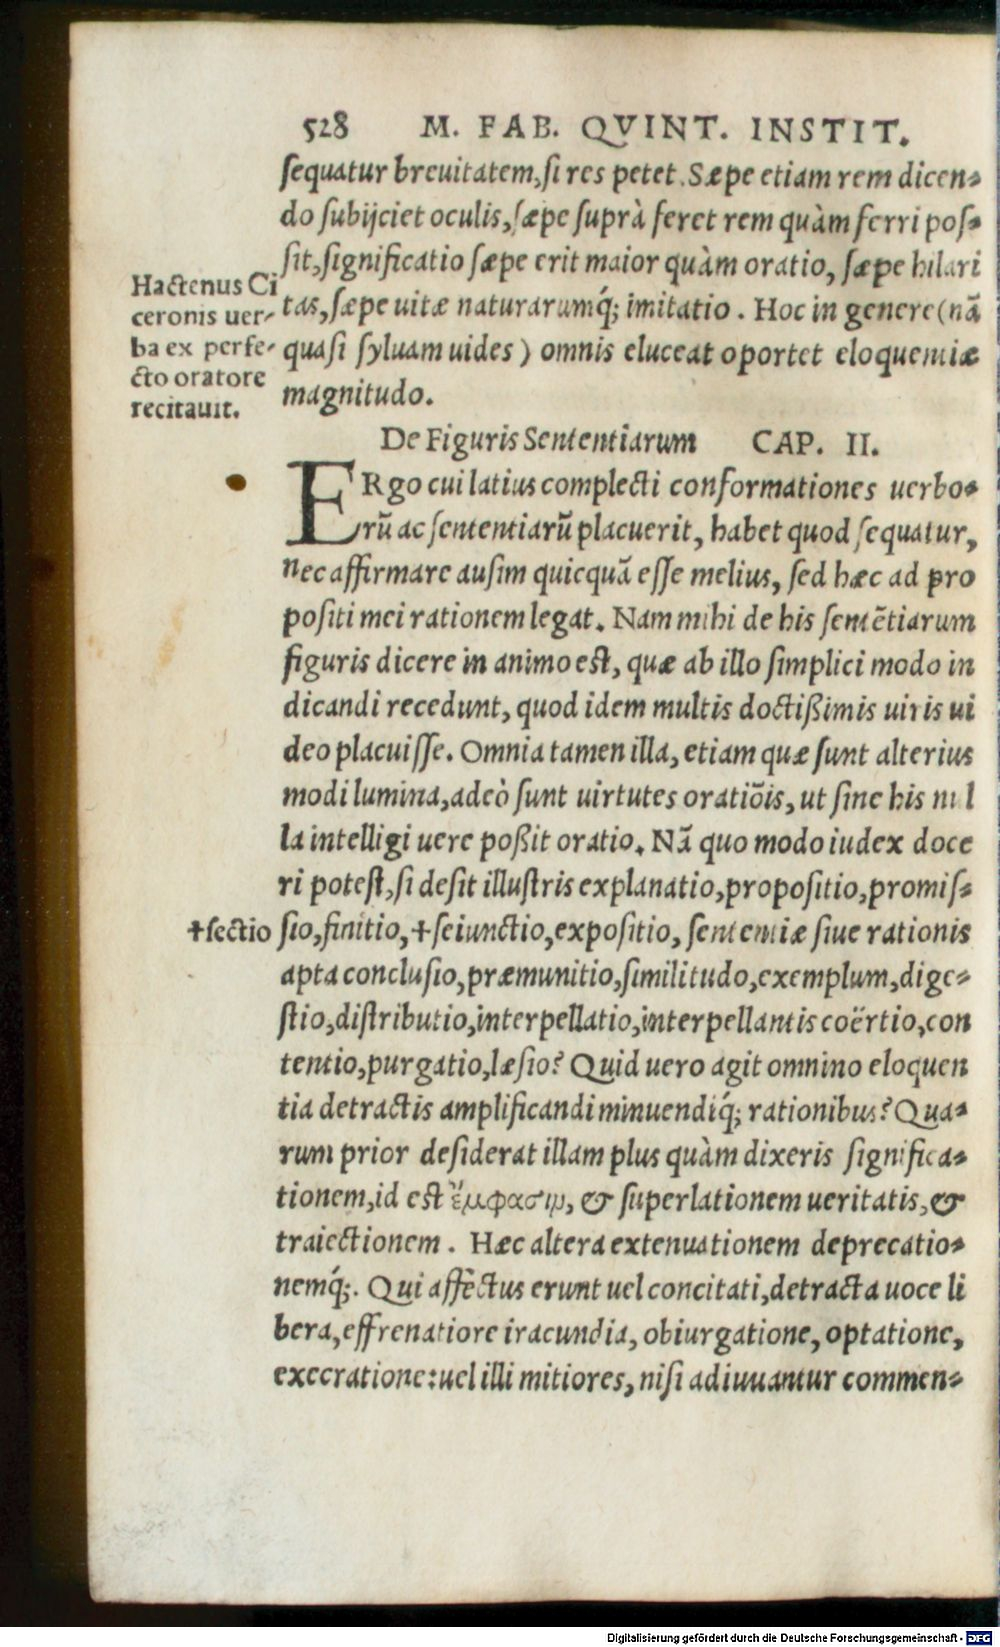 528 M. FAB. QVINT. INSTIT.
sequatur breuitatem, si res petet. Sæpe etiam rem dicen-
do subijciet oculis, sæpe suprà feret rem quàm ferri pos-
sit, significatio sæpe erit maior quàm oratio, sæpe hilari
tas, sæpe uitæ naturarumq́; imitatio. Hoc in genere (nã
quasi syluam uides) omnis eluceat oportet eloquentiæ
magnitudo.
Hactenus Ci
ceronis uer-
ba ex perfe-
cto oratore
recitauit.
De Figuris Sententiarum CAP. II.
ERgo cui latius complecti conformationes uerbo-
rũ ac sententiarũ placuerit, habet quod sequatur,
nec affirmare ausim quicquã esse melius, sed hæc ad pro
positi mei rationem legat. Nam mihi de his sentẽtiarum
figuris dicere in animo est, quæ ab illo simplici modo in
dicandi recedunt, quod idem multis doctißimis uiris ui
deo placuisse. Omnia tamen illa, etiam quæ sunt alterius
modi lumina, adeò sunt uirtutes oratiõis, ut sine his nul
la intelligi uere poßit oratio. Nã quo modo iudex doce
ri potest, si desit illustris explanatio, propositio, promis-
sio, finitio, +seiunctio, expositio, sententiæ siue rationis
+sectio
apta conclusio, præmunitio, similitudo, exemplum, dige-
stio, distributio, interpellatio, interpellantis coërtio, con
tentio, purgatio, læsio? Quid uero agit omnino eloquen
tia detractis amplificandi minuendiq́; rationibus? Qua-
rum prior desiderat illam plus quàm dixeris significa-
tionem, id est ἔμφασιν, & superlationem ueritatis, &
traiectionem. Hæc altera extenuationem deprecatio-
nemq́;. Qui affectus erunt uel concitati, detracta uoce li
bera, effrenatiore iracundia, obiurgatione, optatione,
execratione: uel illi mitiores, nisi adiuuantur commen-
Digitalisierung gefördert durch die Deutsche Forschungsgemeinschaft - DFG